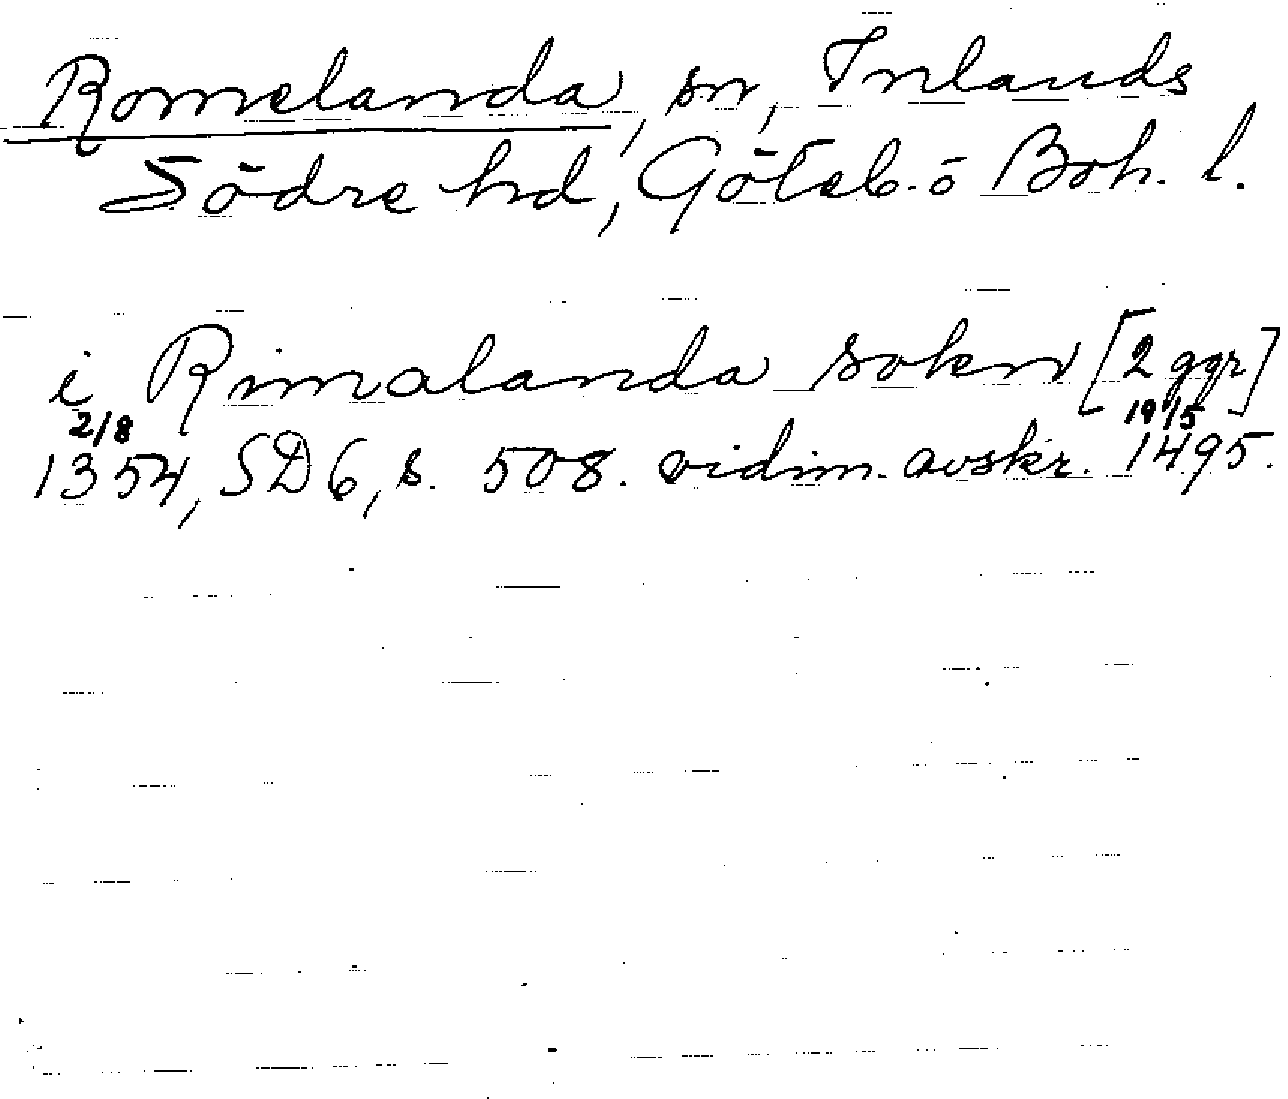 Romelanda, sn, Inlands
Södre hd, Göteb. o Boh. l.
i Rimalanda sokn [2 ggr]
2/8 19/5
1354, SD 6, s. 508. vidim. avskr. 1495.